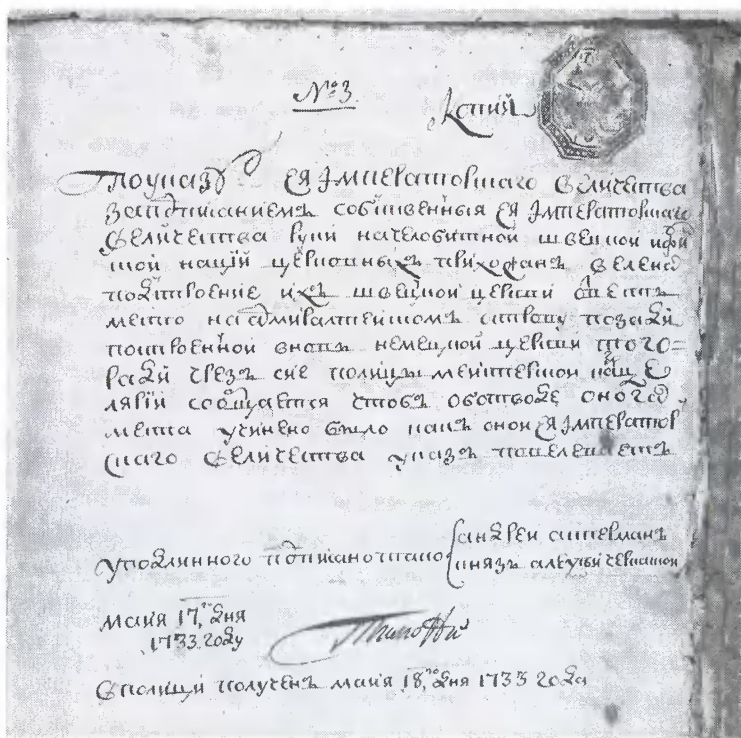 № 3
Копия
По указу Ея Императорскаго Величества
за подписаниемъ собственныя Ея Императорскаго
Величества руки на челобитной швецкой и фин
ской нацiй церковныхъ прихожан велено
по строение ихъ швецкой церкви отвесть
место на адмиралтейскомъ острову позади
построенной вновь немецкой церкви того
ради чрезъ сие полицымейстерской канце
лярiи сообщается чтобъ об отводе оного
места учинено было какъ оной Ея Император
скаго Величества указъ повелеваетъ
у подлинного подписано тако
андреи остерманъ
князь алеѯѣи черкаской
маия 17 го дня
1733 году
в полицы получен маия 18 го дня 1733 года